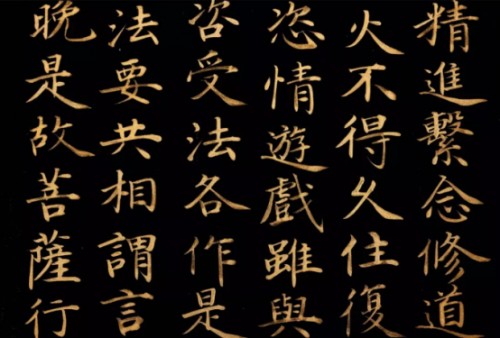 精進繫念修道
火不得久住復
恣情遊戲雖與
咨受法各作是
法要共相謂言
晚是故菩薩行